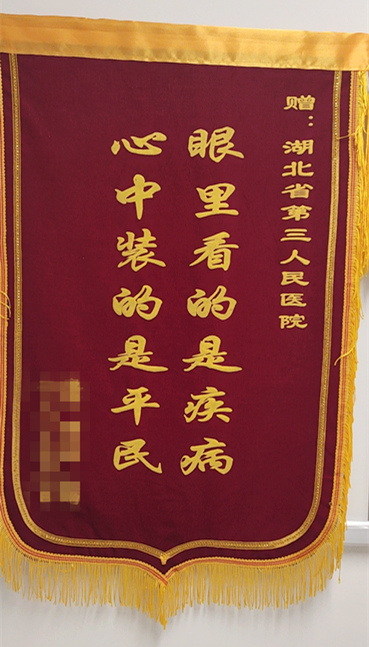 赠：湖北省第三人民医院
眼里看的是疾病
心中装的是平民